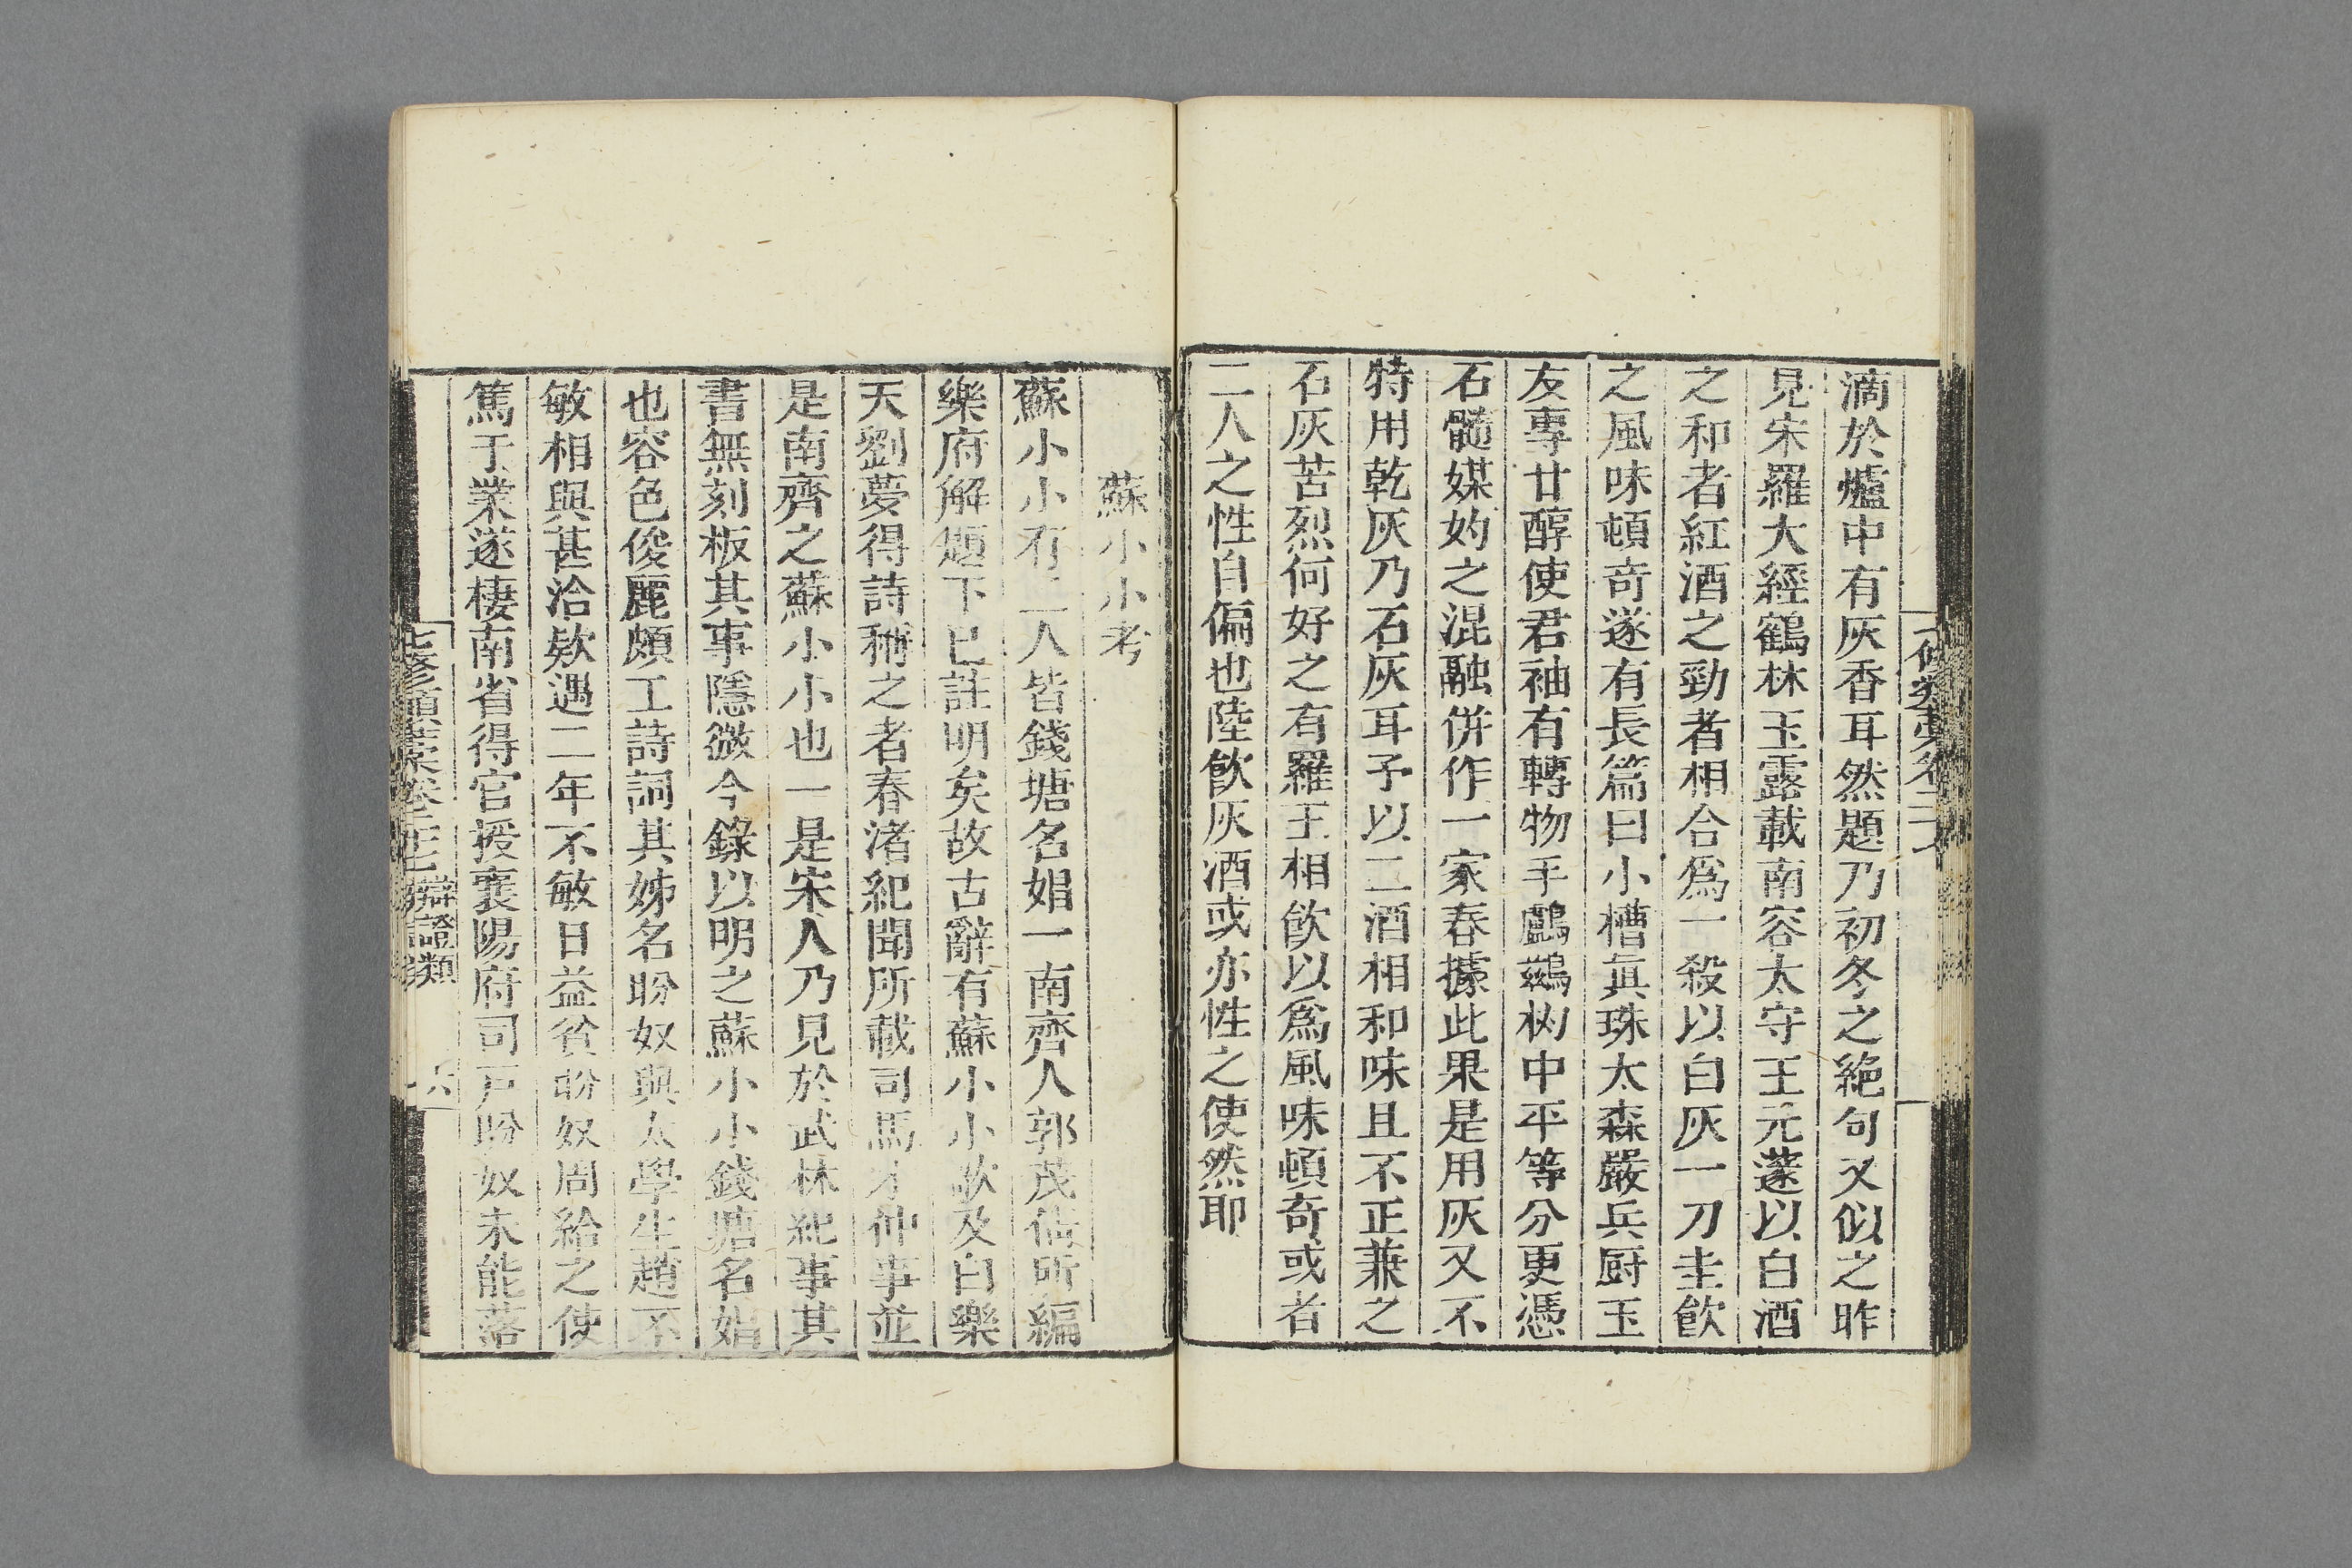 滴於爐中有灰香耳然題乃初冬之絶句又似之昨
見宋羅大經鶴林玉露載南容太守王元邃以白酒
之和者紅酒之勁者相合爲一殺以白灰一刀圭飮
之風味頓奇遂有長篇曰小槽眞珠太森嚴兵厨玉
友專甘醇使君袖有轉物手鸕鷀杓中平等分更憑
石髓媒妁之混融併作一家春據此果是用灰又不
特用乾灰乃石灰耳予以二酒相和味且不正兼之
石灰苦烈何好之有羅王相飮以爲風味頓奇或者
二人之性自偏也陸飮灰酒或亦性之使然耶
蘇小小考
蘇小小有二人皆錢塘名娼一南齊人郭茂倩所編
樂府解題下已註明矣故古辭有蘇小小歌及白樂
天劉夢得詩稱之者春渚紀聞所載司馬才仲事並
是南齊之蘇小小也一是宋人乃見於武林紀事其
書無刻板其事隱微今錄以明之蘇小小錢塘名娼
也容色俊麗頗工詩詞其姊名盼奴與太學生趙不
敏相與甚洽欵遇二年不敏日益貧盼奴周給之使
篤于業遂棲南省得官授襄陽府司戸盼奴未能落
七修類藁卷二十七 辯證類 六